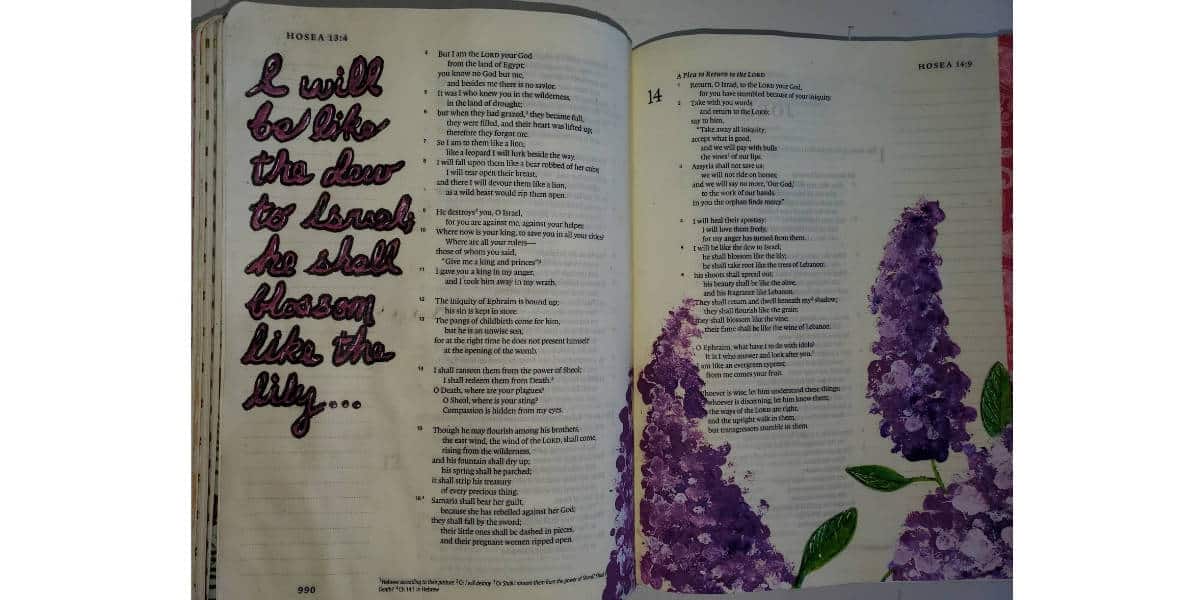 HOSEA 13:4
I will
be like
the dew
to Israel;
he shall
blossom
like the
lily...
4 But I am the LORD your God
from the land of Egypt;
you know no God but me,
and besides me there is no savior.
5 It was I who knew you in the wilderness,
in the land of drought;
6 but when they had grazed, they became full,
they were filled, and their heart was lifted up;
therefore they forgot me.
7 So I am to them like a lion;
like a leopard I will lurk beside the way.
8 I will fall upon them like a bear robbed of her cubs;
I will tear open their breast,
and there I will devour them like a lion,
as a wild beast would rip them open.
9 He destroys you, O Israel,
for you are against me, against your helper.
10 Where now is your king, to save you in all your cities?
Where are all your rulers—
those of whom you said,
"Give me a king and princes"?
11 I gave you a king in my anger,
and I took him away in my wrath.
12 The iniquity of Ephraim is bound up;
his sin is kept in store.
13 The pangs of childbirth come for him,
but he is an unwise son,
for at the right time he does not present himself
at the opening of the womb.
14 I shall ransom them from the power of Sheol;
I shall redeem them from Death.
O Death, where are your plagues?
O Sheol, where is your sting?
Compassion is hidden from my eyes.
15 Though he may flourish among his brothers,
the east wind, the wind of the LORD, shall come,
rising from the wilderness,
and his fountain shall dry up;
his spring shall be parched;
it shall strip his treasury
of every precious thing.
16 Samaria shall bear her guilt,
because she has rebelled against her God;
they shall fall by the sword;
their little ones shall be dashed in pieces,
and their pregnant women ripped open.
990
HOSEA 14:9
A Plea to Return to the LORD
14
1 Return, O Israel, to the LORD your God,
for you have stumbled because of your iniquity.
2 Take with you words
and return to the LORD;
say to him,
"Take away all iniquity;
accept what is good,
and we will pay with bulls
the vows of our lips.
3 Assyria shall not save us;
we will not ride on horses;
and we will say no more, 'Our God,'
to the work of our hands.
In you the orphan finds mercy."
I will heal their apostasy;
I will love them freely,
for my anger has turned from them.
I will be like the dew to Israel;
he shall blossom like the lily;
he shall take root like the trees of Lebanon;
his shoots shall spread out;
his beauty shall be like the olive,
and his fragrance like Lebanon.
They shall return and dwell beneath my shadow;
they shall flourish like the grain;
they shall blossom like the vine;
their fame shall be like the wine of Lebanon.
O Ephraim, what have I to do with idols?
It is I who answer and look after you.
am like an evergreen cypress;
from me comes your fruit.
Whoever is wise, let him understand these things;
whoever is discerning, let him know them;
the ways of the LORD are right,
and the upright walk in them,
but transgressors stumble in them.